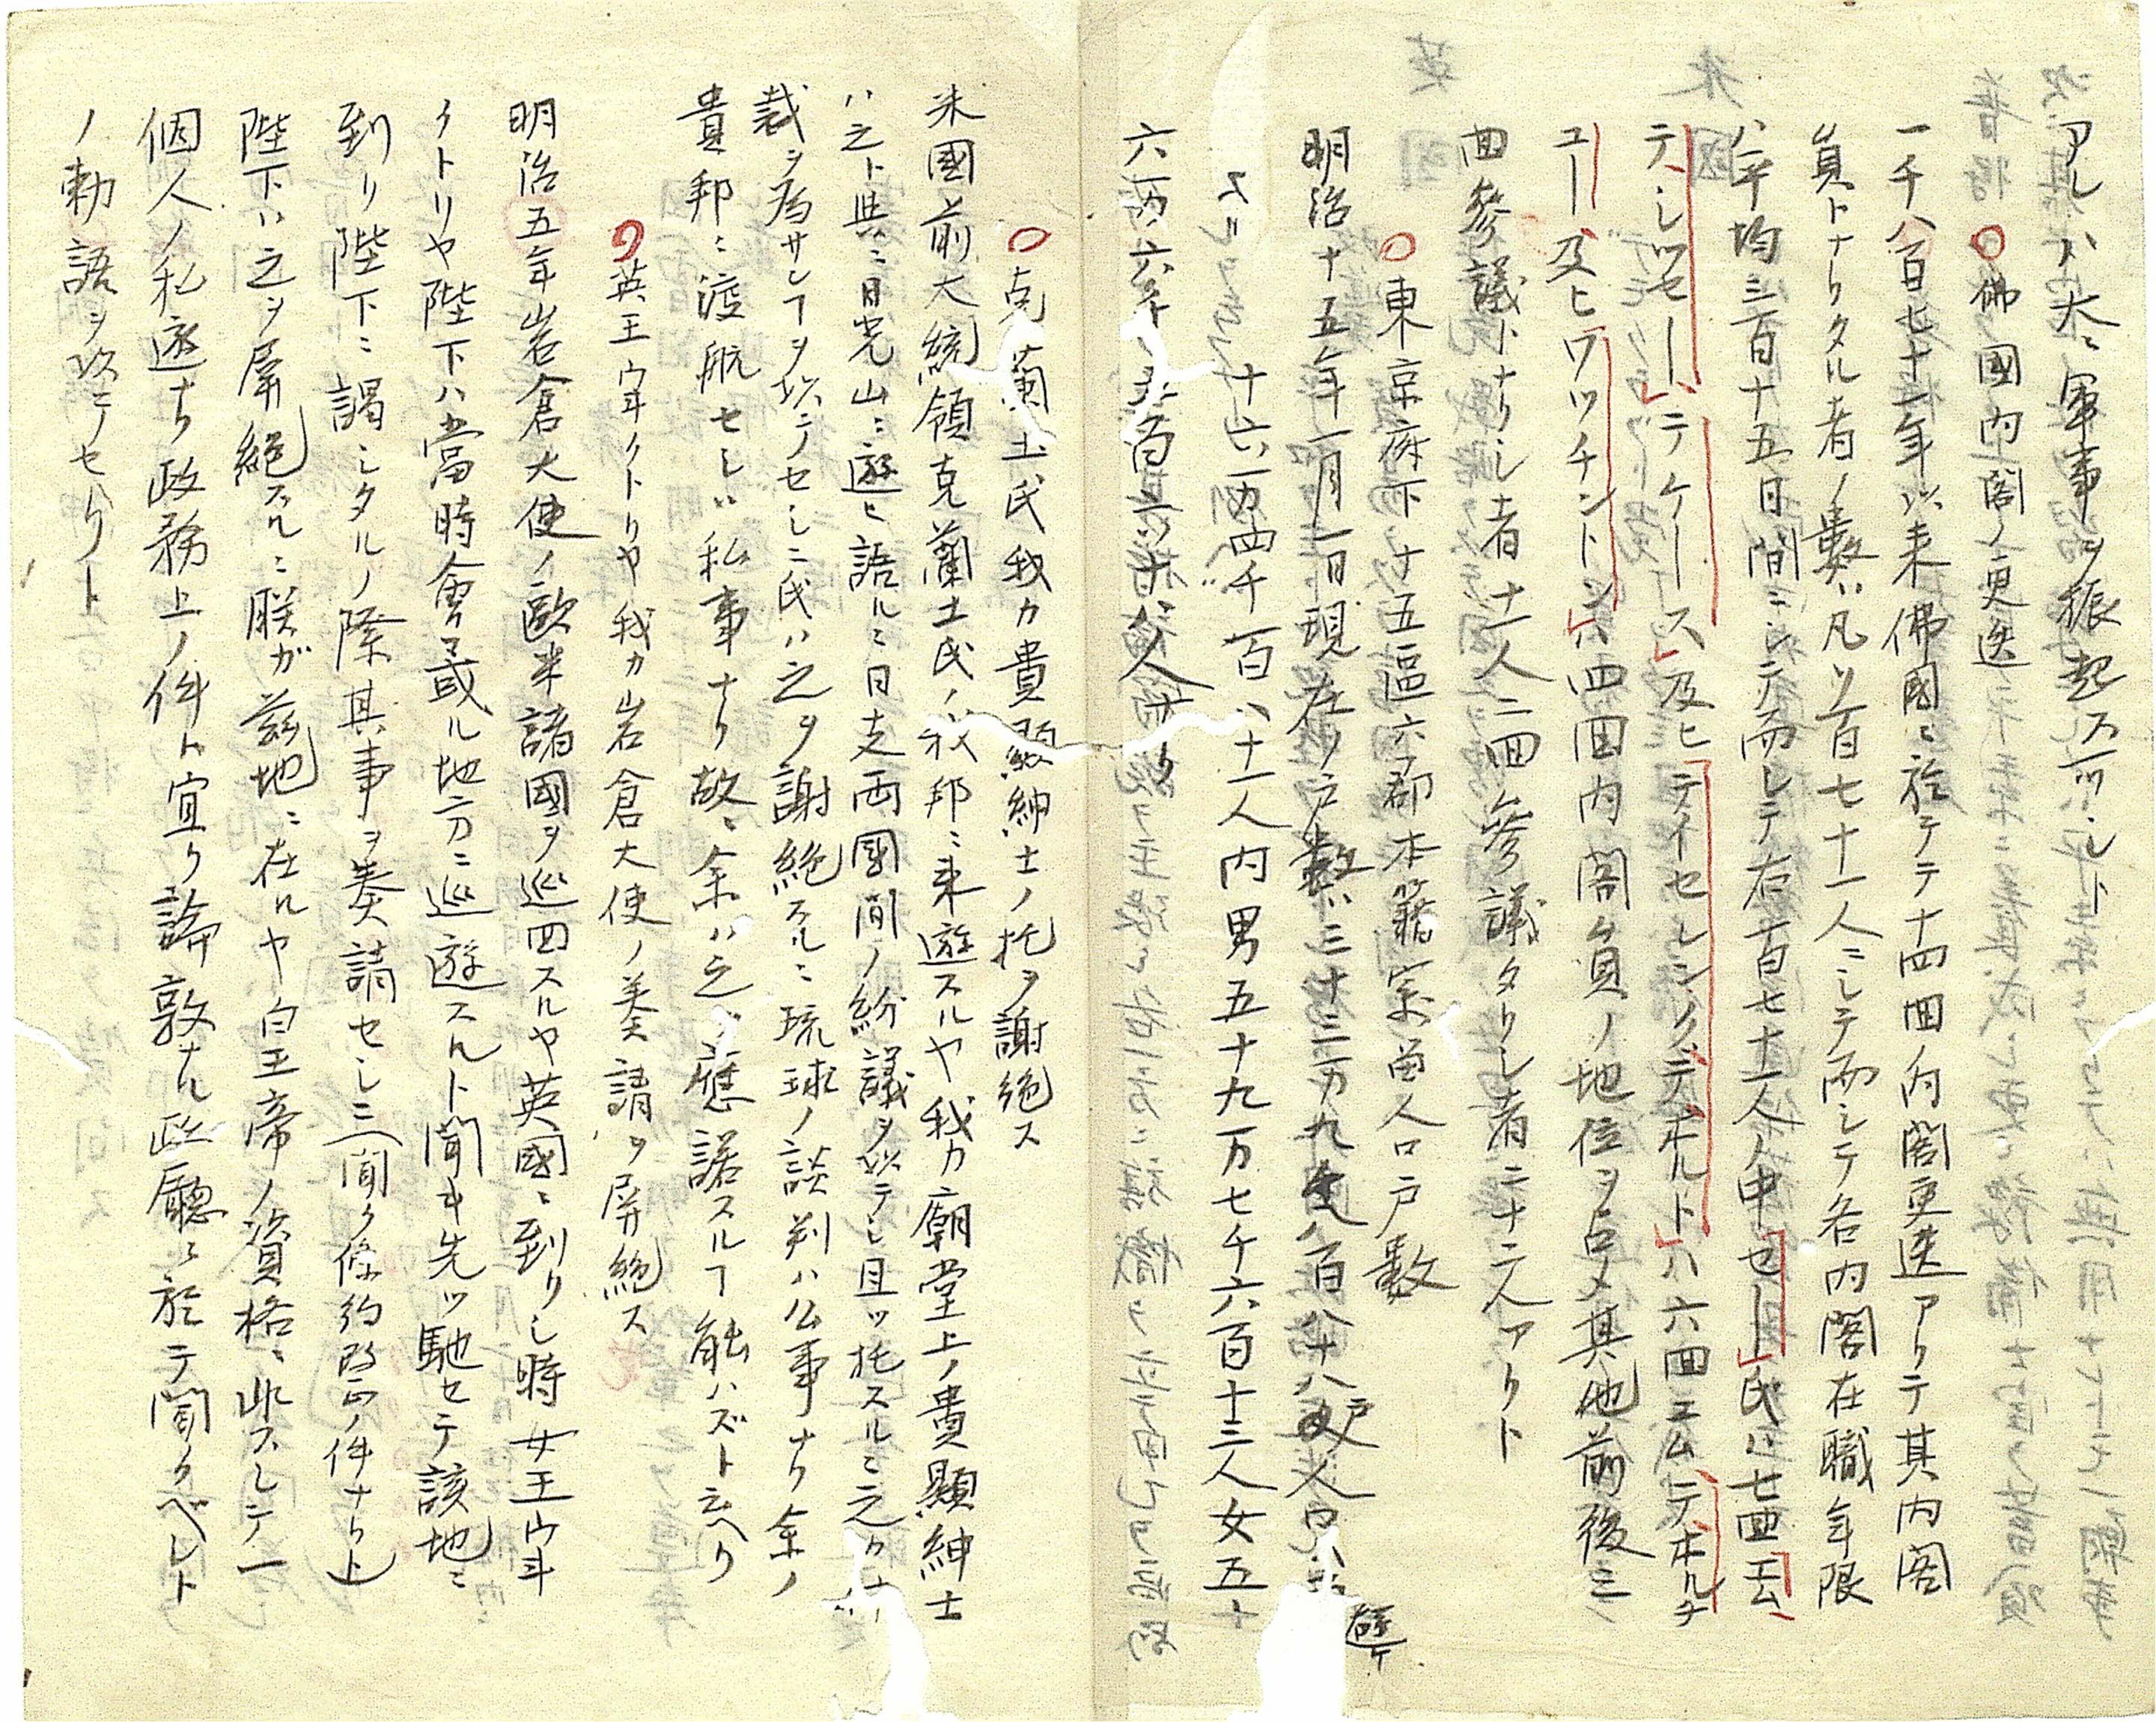 アレハ大ニ軍事ヲ振起スベシト
○佛國内閣ノ更迭
一千八百七十一年以来佛國ニ於テ十四回内閣更迭アリテ其内閣
員トナリタル者ノ数ハ凡ソ百七十一人ニシテ而シテ各内閣在職年限
ハ平均三百十五日間ニシテ而シテ右百七十一人ノ中「セー」氏ハ七回
「テシツセー」「テケース」及ヒ「テイセレンクデボルト」ハ六回エム「テボルチ
ユー」及ヒ「ワツチントン」ハ四回内閣員ノ地位ヲ占メ其他前後三
回参議トナリシ者十一人二回参議タリシ者二十二人アリト
○東京府下十五區六郡本籍寄留人口戸数
明治十五年一月一日現在ノ戸数ハ三十三万九千八百八十八戸人口ハ
十六万四千一百八十一人内男五十九万七千六百十三人女五十
六万六千五百六十八人ナリ
○克蘭土氏我カ貴顯紳士ノ托ヲ謝絶ス
米國前大統領克蘭土氏ノ我邦ニ来遊スルヤ我カ廟堂上ノ貴顯紳士
ハ之ト共ニ日光山ニ遊ヒ語ルニ日支両國間ノ紛議ヲ以テシ且ツ托スルニ之カ
裁ヲ為サレヿヲ以テセシニ氏ハ之ヲ謝絶スルニ琉球ノ談判ハ公事ナリ余ノ
貴邦ニ渡航セシハ私事ナリ故ニ余ハ之ニ應諾スルヿ能ハズト云ヘリ
○英王ウ井クトリヤ我カ岩倉大使ノ奏請ヲ屏絶ス
明治五年岩倉大使ノ歐米諸國ヲ巡回スルヤ英國ニ到リシ時女王ウ井
クトリヤ陛下ハ當時會マ或ル地方ニ巡遊スルト聞キ先ツ馳セテ該地ニ
到リ陛下ニ謁シタルノ際其事ヲ奏請セシニ(聞ク條約改正ノ件ナリト)
陛下ハ之ヲ屏絶スルニ朕ガ茲地ニ在ルヤ白王帝ノ資格ニ非スシテ一
個人ノ私遊ナリ政務上ノ件ハ宜ク論敦ナル政廳ニ於テ聞クベシト
ノ勅語ヲ以テセリト